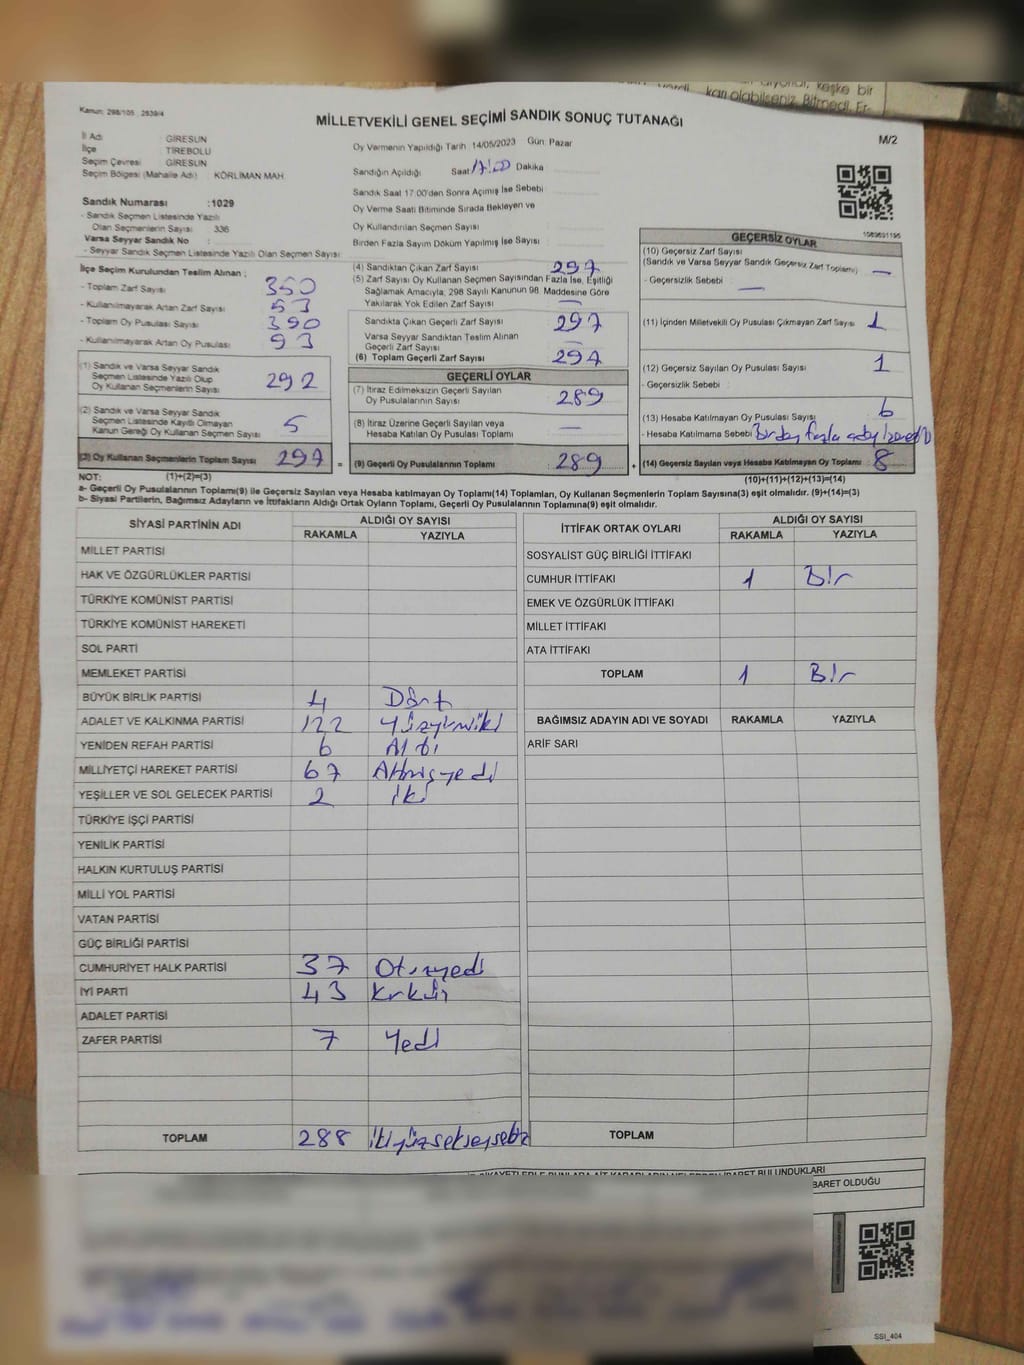 karı olabilseniz. Bitmedi. Er-
Kanun: 298/105 , 2839/4
MİLLETVEKİLİ GENEL SEÇİMİ SANDIK SONUÇ TUTANAĞI
M/2
İl Adı : GİRESUN
İlçe : TİREBOLU
Seçim Çevresi : GİRESUN
Seçim Bölgesi (Mahalle Adı) : KÖRLİMAN MAH
Sandık Numarası :1029
- Sandık Seçmen Listesinde Yazılı
Olan Seçmen Sayısı 336
Varsa Seyyar Sandık No :
- Seyyar Sandık Seçmen Listesinde Yazılı Olan Seçmen Sayısı
Oy Vermenin Yapıldığı Tarih 14/05/2023 Gün Pazar
Sandığın Açıldığı Saat 17:00 Dakika
Sandık Saat 17.00'den Sonra Açılmış İse Sebebi
Oy Verme Saati Bitiminde Sırada Bekleyen ve
Oy Kullandırılan Seçmen Sayısı
Birden Fazla Sayım Döküm Yapılmış İse Sayısı
İlçe Seçim Kurulundan Teslim Alınan ;
- Toplam Zarf Sayısı 350
- Kullanılmayarak Artan Zarf Sayısı 53
- Toplam Oy Pusulası Sayısı 390
- Kullanılmayarak Artan Oy Pusulası 93
(1) Sandık ve Varsa Seyyar Sandık
Seçmen Listesinde Yazılı Olup
Oy Kullanan Seçmenlerin Sayısı 292
(2) Sandık ve Varsa Seyyar Sandık
Seçmen Listesinde Kayıtlı Olmayan
Kanun Gereği Oy Kullanan Seçmen Sayısı 5
(3) Oy Kullanan Seçmenlerin Toplam Sayısı 297 =
(4) Sandıktan Çıkan Zarf Sayısı 297
(5) Zarf Sayısı Oy Kullanan Seçmen Sayısından Fazla İse, Eşitliği
Sağlamak Amacıyla; 298 Sayılı Kanunun 98. Maddesine Göre
Yakılarak Yok Edilen Zarf Sayısı —
Sandıkta Çıkan Geçerli Zarf Sayısı 297
Varsa Seyyar Sandıktan Teslim Alınan
Geçerli Zarf Sayısı —
(6) Toplam Geçerli Zarf Sayısı 297
GEÇERLİ OYLAR
(7) İtiraz Edilmeksizin Geçerli Sayılan
Oy Pusulalarının Sayısı 289
(8) İtiraz Üzerine Geçerli Sayılan veya
Hesaba Katılan Oy Pusulası Toplamı —
(9) Geçerli Oy Pusulalarının Toplamı 289 +
1089691195
GEÇERSİZ OYLAR
(10) Geçersiz Zarf Sayısı
(Sandık ve Varsa Seyyar Sandık Geçersiz Zarf Toplamı) —
- Geçersizlik Sebebi : —
(11) İçinden Milletvekili Oy Pusulası Çıkmayan Zarf Sayısı 1
(12) Geçersiz Sayılan Oy Pusulası Sayısı 1
- Geçersizlik Sebebi :
(13) Hesaba Katılmayan Oy Pusulası Sayısı 6
- Hesaba Katılmama Sebebi : Birden fazla
(14) Geçersiz Sayılan veya Hesaba Katılmayan Oy Toplamı 8
NOT: (1)+(2)=(3) (10)+(11)+(12)+(13)=(14)
a- Geçerli Oy Pusulalarının Toplamı(9) ile Geçersiz Sayılan veya Hesaba katılmayan Oy Toplamı(14) Toplamları, Oy Kullanan Seçmenlerin Toplam Sayısına(3) eşit olmalıdır. (9)+(14)=(3)
b- Siyasi Partilerin, Bağımsız Adayların ve İttifakların Aldığı Ortak Oyların Toplamı, Geçerli Oy Pusulalarının Toplamına(9) eşit olmalıdır.
SİYASİ PARTİNİN ADI ALDIĞI OY SAYISI
RAKAMLA YAZIYLA
MİLLET PARTİSİ
HAK VE ÖZGÜRLÜKLER PARTİSİ
TÜRKİYE KOMÜNİST PARTİSİ
TÜRKİYE KOMÜNİST HAREKETİ
SOL PARTİ
MEMLEKET PARTİSİ
BÜYÜK BİRLİK PARTİSİ 4 Dört
ADALET VE KALKINMA PARTİSİ 122 Yüzyirmiiki
YENİDEN REFAH PARTİSİ 6 Altı
MİLLİYETÇİ HAREKET PARTİSİ 67 Altmışyedi
YEŞİLLER VE SOL GELECEK PARTİSİ 2 iki
TÜRKİYE İŞÇİ PARTİSİ
YENİLİK PARTİSİ
HALKIN KURTULUŞ PARTİSİ
MİLLİ YOL PARTİSİ
VATAN PARTİSİ
GÜÇ BİRLİĞİ PARTİSİ
CUMHURİYET HALK PARTİSİ 37 Otuzyedi
İYİ PARTİ 43 Kırküç
ADALET PARTİSİ
ZAFER PARTİSİ 7 Yedi
TOPLAM 288 ikiyüzseksensekiz
İTTİFAK ORTAK OYLARI ALDIĞI OY SAYISI
RAKAMLA YAZIYLA
SOSYALİST GÜÇ BİRLİĞİ İTTİFAKI
CUMHUR İTTİFAKI 1 Bir
EMEK VE ÖZGÜRLÜK İTTİFAKI
MİLLET İTTİFAKI
ATA İTTİFAKI
TOPLAM 1 Bir
BAĞIMSIZ ADAYIN ADI VE SOYADI RAKAMLA YAZIYLA
ARİF SARI
TOPLAM
BARET OLDUĞU
SSİ_404